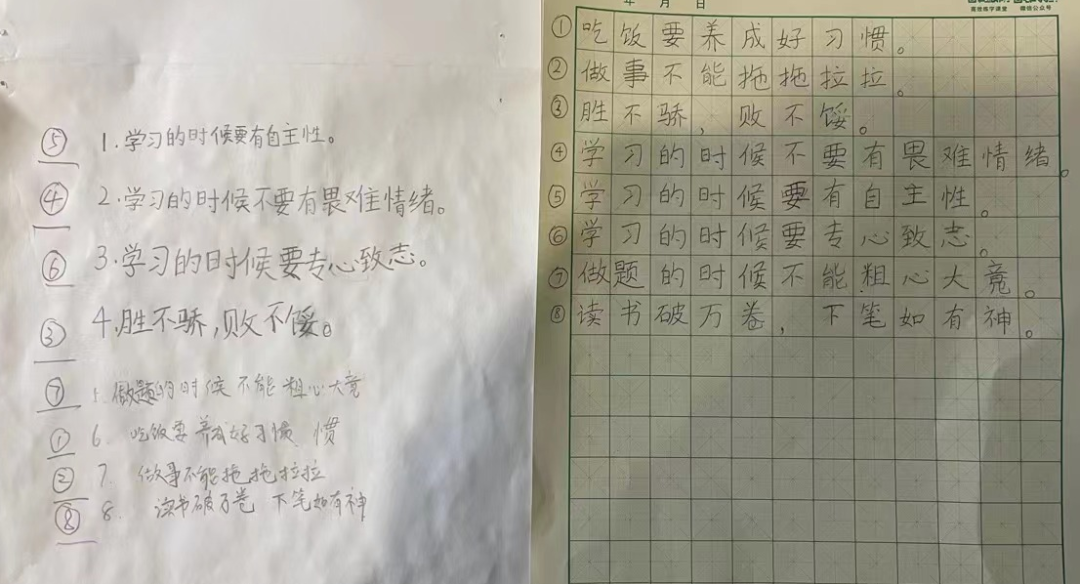 ⑤ 1.学习的时候要有自主性。
④ 2.学习的时候不要有畏难情绪。
⑥ 3.学习的时候要专心致志。
③ 4.胜不骄,败不馁。
⑦ 5.做题的时候不能粗心大竟
① 6. 吃饭要养成好习惯 惯
② 7. 做事不能拖拖拉拉
⑧ 8. 读书破万卷 下笔如有神
年 月 日
①吃饭要养成好习惯。
②做事不能拖拖拉拉。
③胜不骄,败不馁。
④学习的时候不要有畏难情绪。
⑤学习的时候要有自主性。
⑥学习的时候要专心致志。
⑦做题的时候不能粗心大竟。
⑧读书破万卷,下笔如有神。